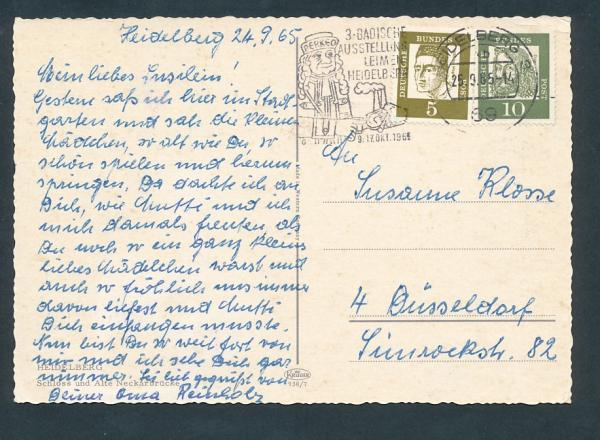 Heidelberg 24.9.65
Mein liebes Susilein!
Gestern saß ich hier im Stadt
garten und sah die kleinen
Mädchen, so alt wie Du, so
schön spielen und herum
springen. Da dachte ich an
Dich, wie Mutti und ich
uns damals freuten, als
Du noch so ein ganz kleines
liebes Mädelchen warst und
auch so fröhlich uns immer
davon liefest und Mutti
Dich einfangen musste.
Nun bist Du so weit fort von
mir und ich sehe Dich gar
nimmer. Sei lieb gegrüßt von
Deiner Oma Reinholz
HEIDELBERG
Schloss und Alte Neckarbrücke
Krüger
938/7
PERKEO
3. BADISCHE
AUSSTELLUNG
LEIMEN
HEIDELBERG
9.-17. OKT. 1965
HEIDELBERG
DEUTSCHE BUNDESPOST
5
DEUTSCHE BUNDESPOST
10
An
Susanne Klosse
4 Düsseldorf
Simrockstr. 82